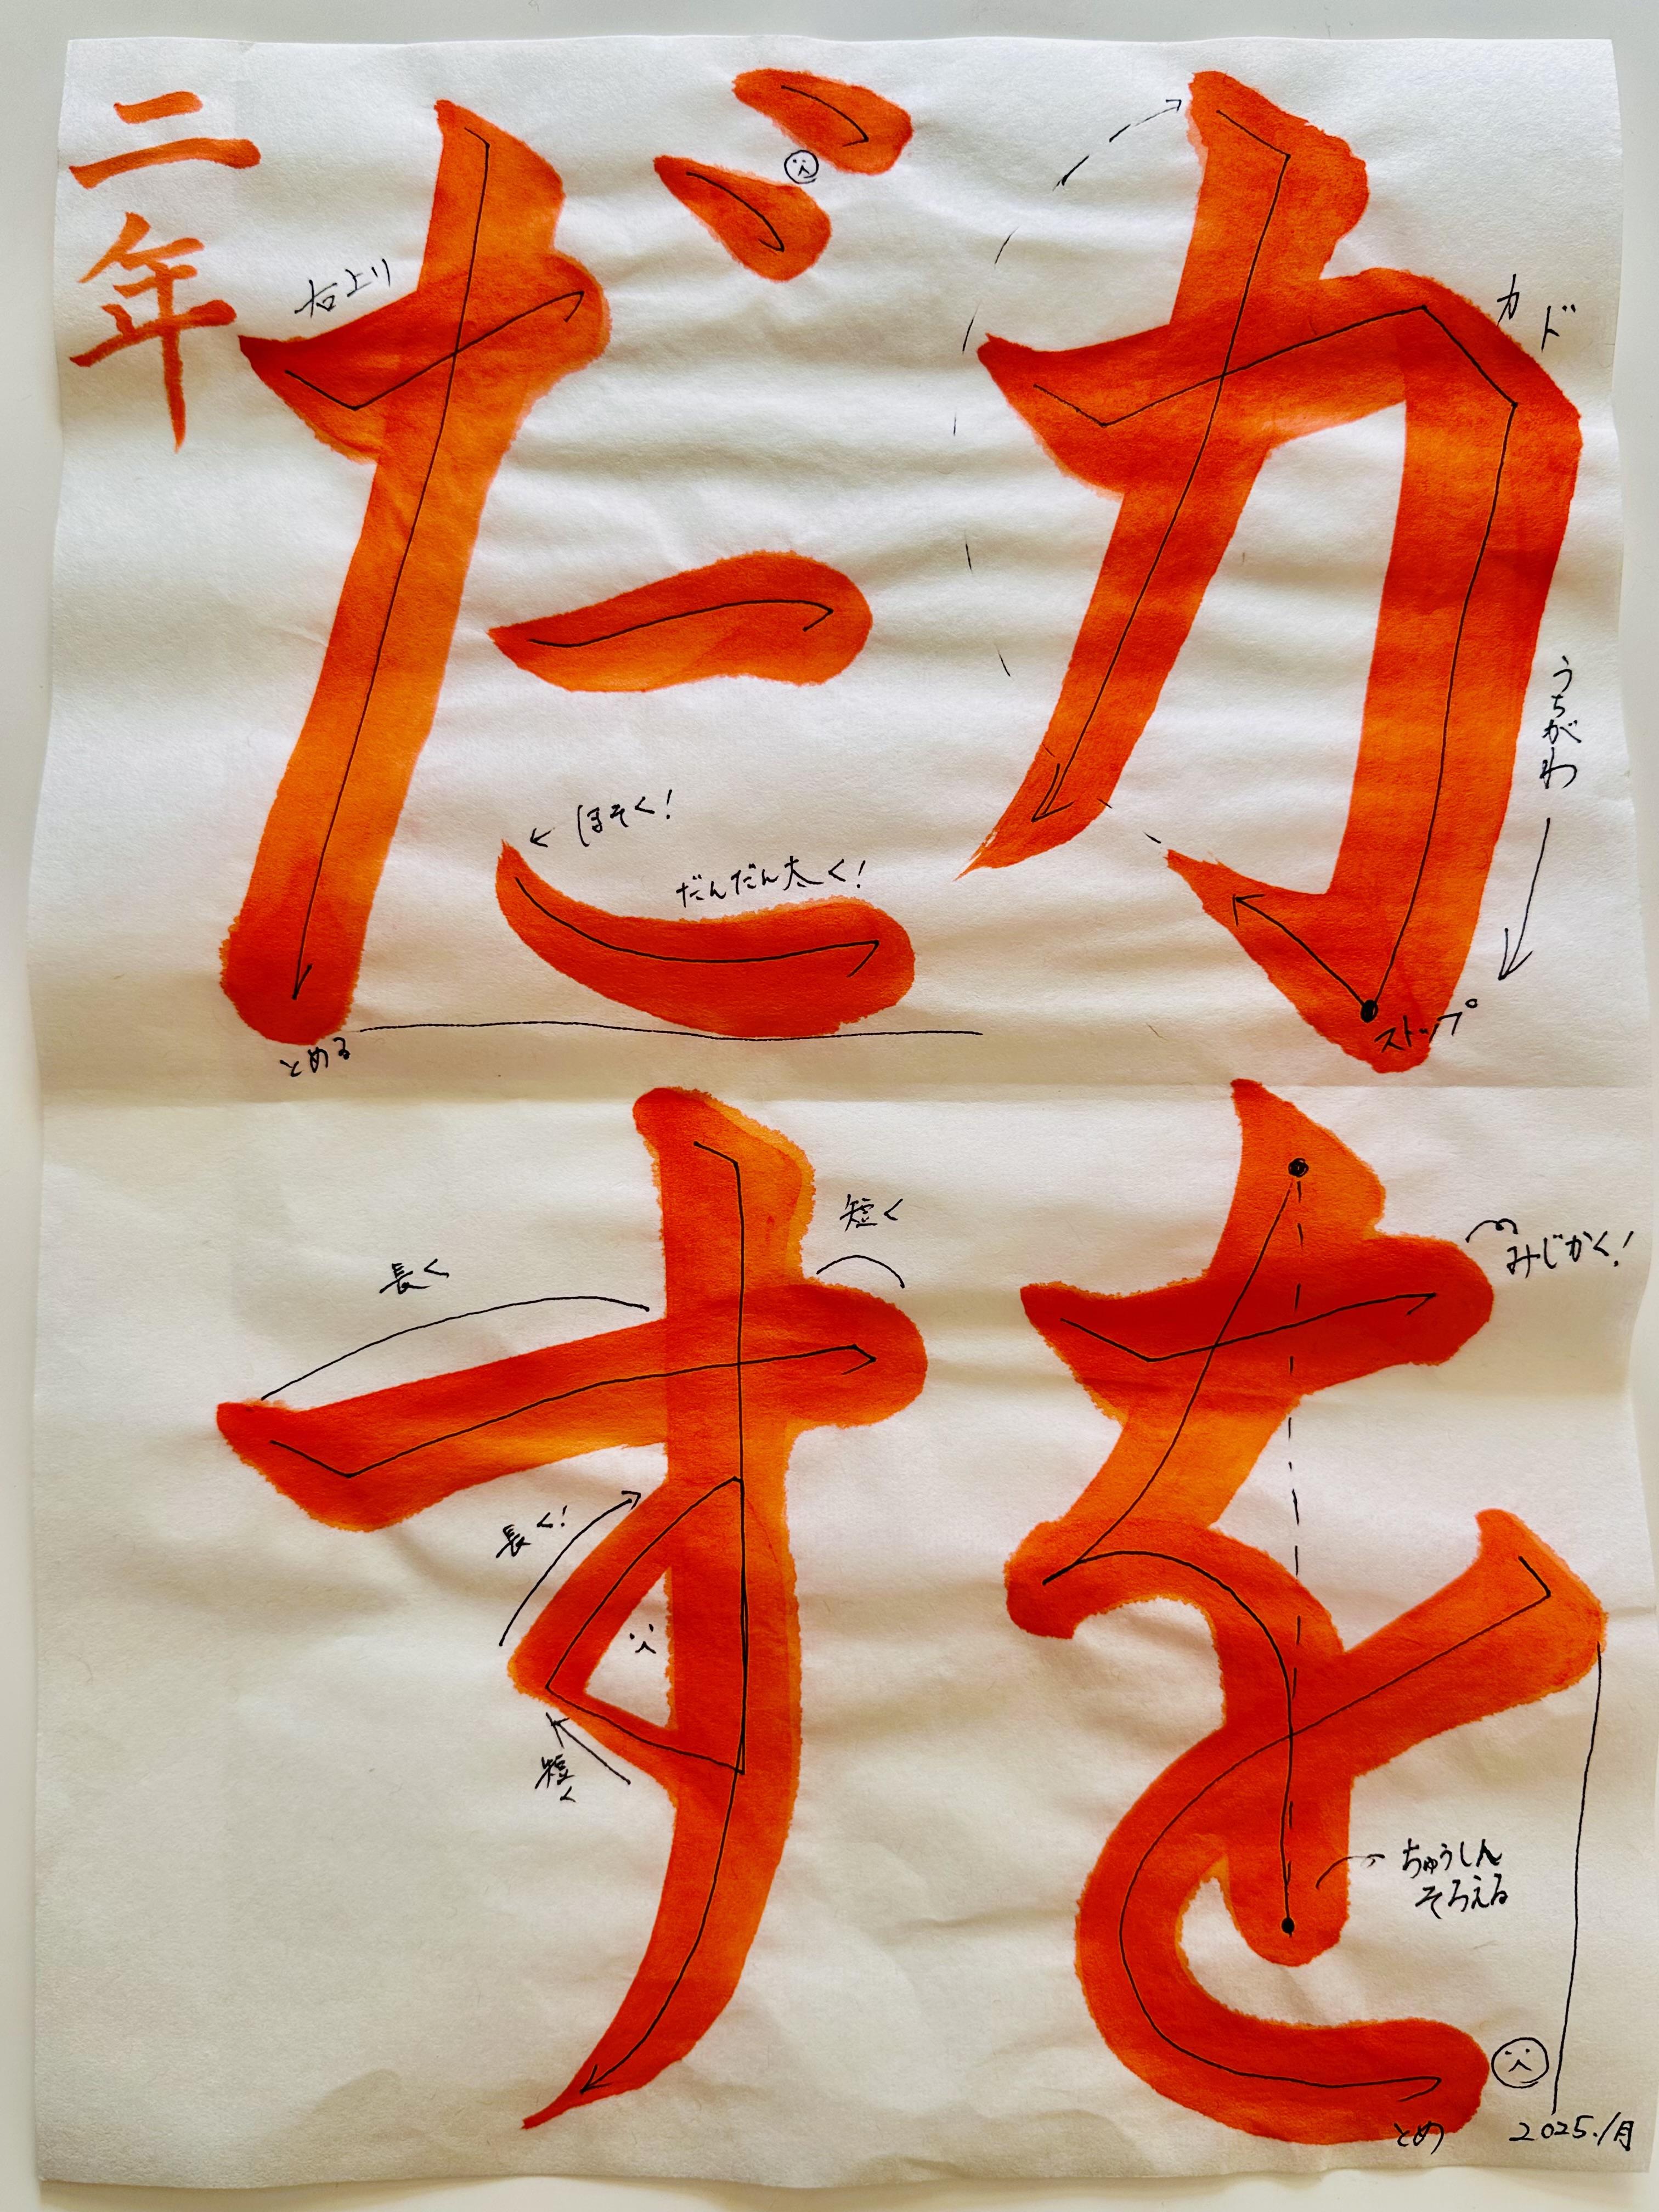 力を
カド
うちがわ
ストップ
みじかく!
ちゅうしん
そろえる
とめ
2025.1月
だす
右上り
ほそく!
だんだん太く!
とめる
短く
長く
長く!
短く
二年